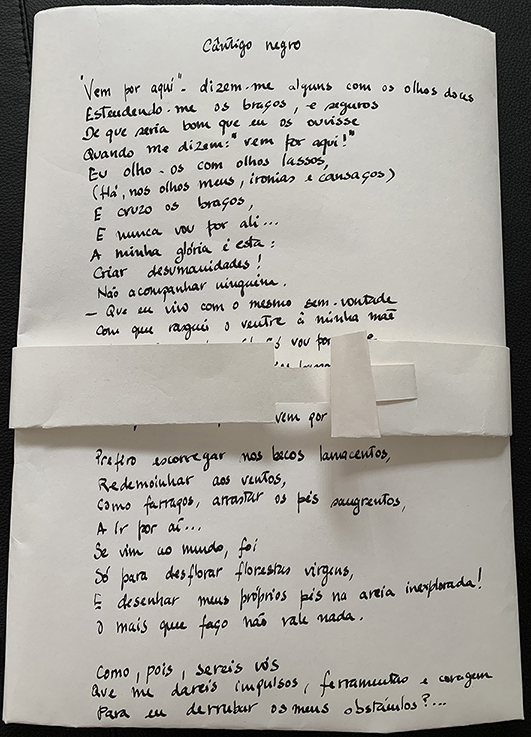 Cântigo negro
"Vem por aqui" - dizem-me alguns com os olhos doces
Estendendo-me os braços, e seguros
De que seria bom que eu os ouvisse
Quando me dizem: "vem por aqui!"
Eu olho-os com olhos lassos,
(Há, nos olhos meus, ironias e cansaços)
E cruzo os braços,
E nunca vou por ali...
A minha glória é esta:
Criar desumanidades!
Não acompanhar ninguém.
— Que eu vivo com o mesmo sem-vontade
Com que rasguei o ventre à minha mãe
vou por
vem por
Prefiro escorregar nos becos lamacentos,
Redemoinhar aos ventos,
Como farrapos, arrastar os pés sangrentos,
A ir por aí...
Se vim ao mundo, foi
Só para desflorar florestas virgens,
E desenhar meus próprios pés na areia inexplorada!
O mais que faço não vale nada.
Como, pois, sereis vós
Que me dareis impulsos, ferramentas e coragem
Para eu derrubar os meus obstáculos?...